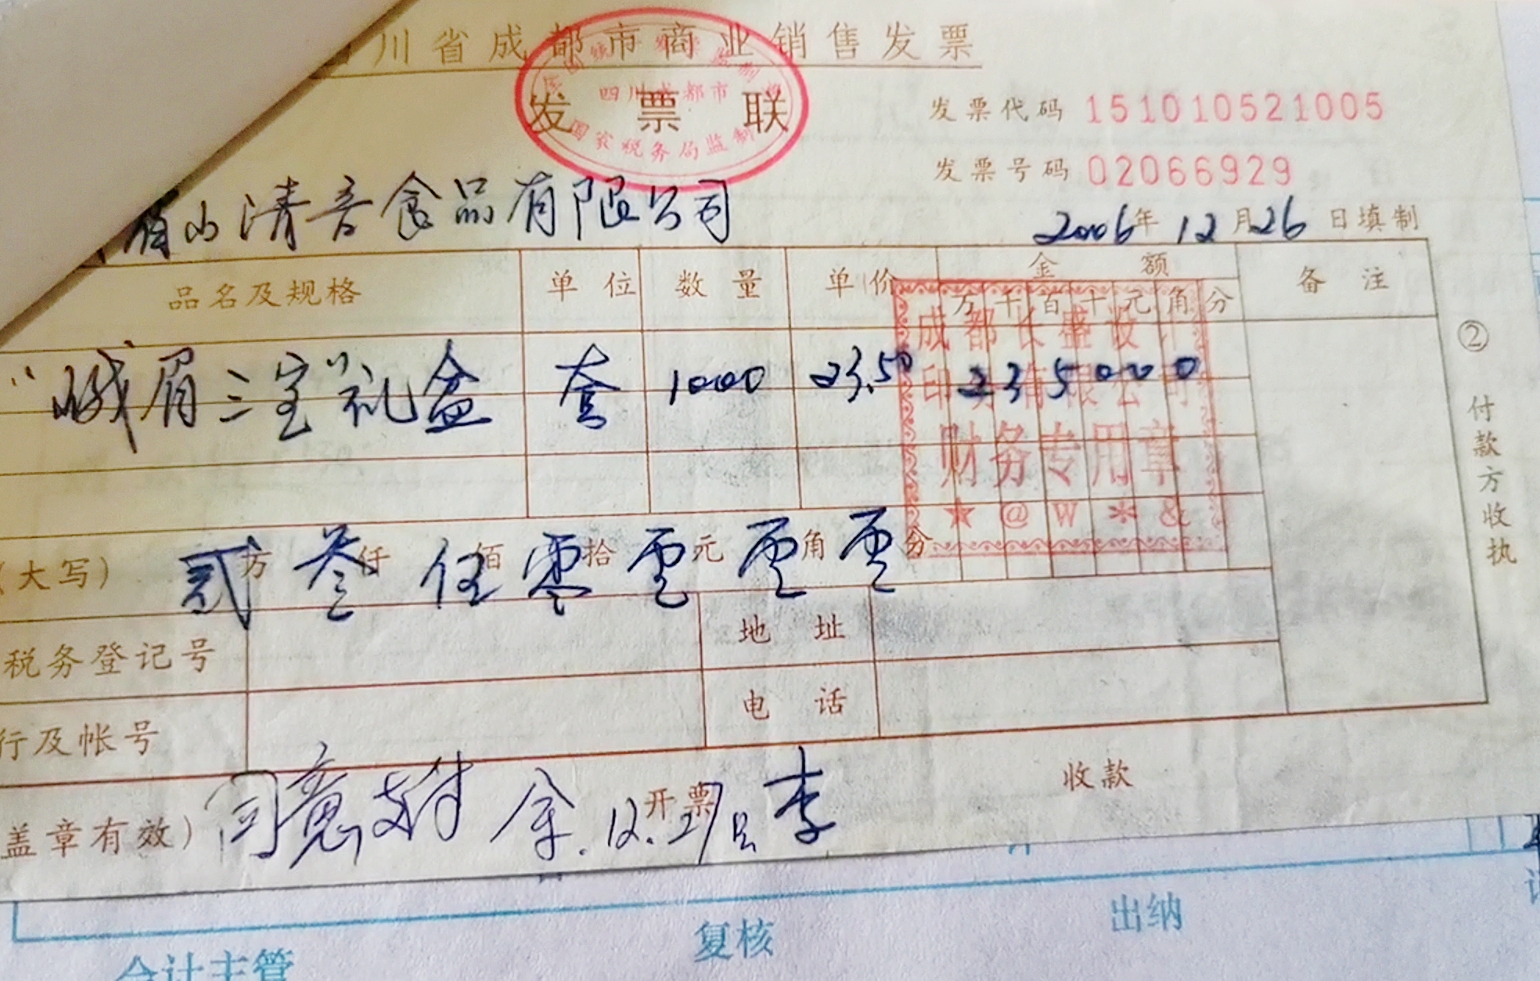 川省成都市商业销售发票
四川成都市
发票联
国家税务局监制
发票代码 151010521005
发票号码 02066929
眉山清音食品有限公司
2006年 12月26日填制
品名及规格 单位 数量 单价 金额 备注
万千百十元角分
成都长盛收
“峨眉三宝”礼盒 套 1000 23.50 2350000
印务有限公司
财务专用章
★ @ W * &
(大写) 贰万叁仟伍佰零拾零元零角零分
税务登记号 地址
行及帐号 电话
盖章有效) 同意支付 余.12.27日 开票 李 收款
② 付款方收执
会计主管 复核 出纳